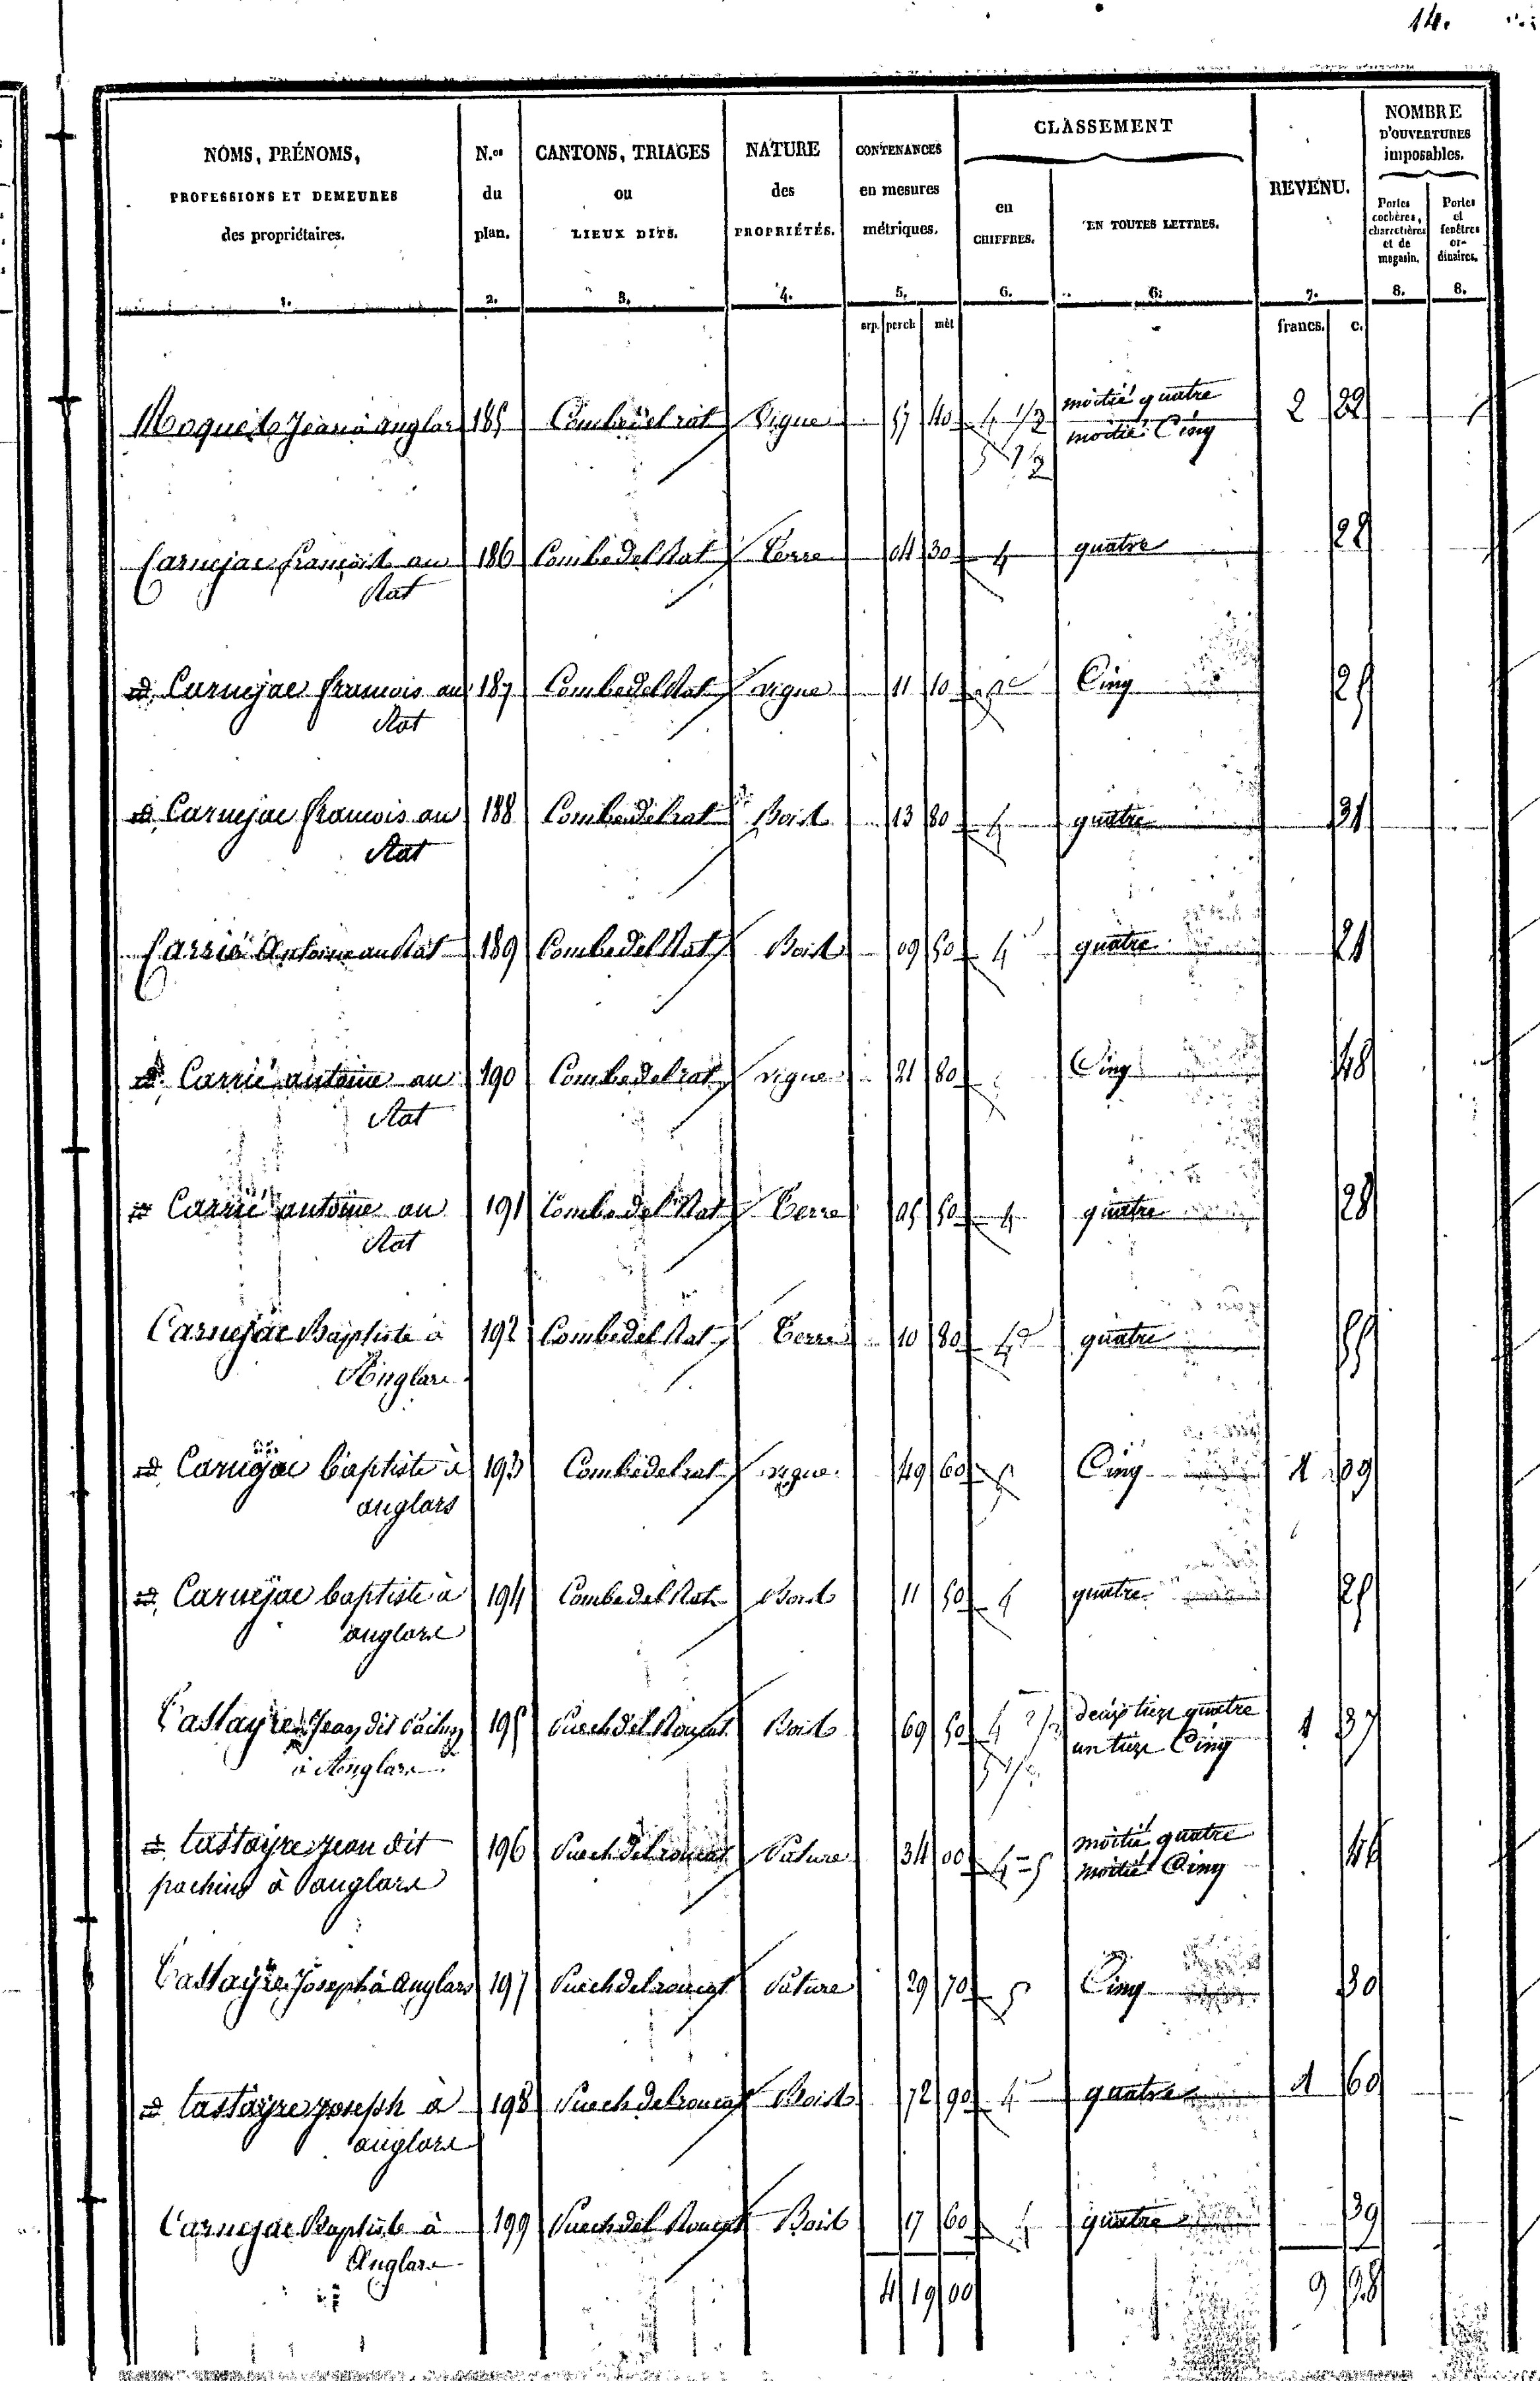 14.
NOMS, PRÉNOMS,
PROFESSIONS ET DEMEURES
des propriétaires.
1.
N.os
du
plan.
2.
CANTONS, TRIAGES
ou
LIEUX DITS.
3.
NATURE
des
PROPRIÉTÉS.
4.
CONTENANCES
en mesures
métriques.
5.
CLASSEMENT
en
CHIFFRES.
6.
EN TOUTES LETTRES.
6.
REVENU.
7.
NOMBRE
D'OUVERTURES
imposables.
Portes
cochères,
charretières
et de
magasin.
8.
Portes
et
fenêtres
or-
dinaires.
8.
arp. perch mèt francs. c.
Jean à anglars 185 Combe del rat Vigne 57 40 4 1/2 moitié quatre 2 22
5 1/2 moitié Cinq
Carnejac françois au 186 Combe del Rat Terre 04 30 4 quatre 22
Rat
id. Carnejac francois au 187 Combe del Rat vigne 11 10 5 Cinq 25
Rat
id. Carnejac francois au 188 Combe del rat Bois 13 80 4 quatre 31
Rat
Carrié Antoine au Rat 189 Combe del Rat Bois 09 50 4 quatre 21
id. Carrié antoine au 190 Combe del rat vigne 21 80 Cinq 48
Rat
id Carrié antoine au 191 Combe del Rat Terre 05 50 4 quatre 28
Rat
Carnejac Baptiste à 192 Combe del Rat Terre 10 80 4 quatre 55
Anglars
id Carnejac baptiste à 193 Combe del rat vigne 49 60 5 Cinq 1 09
anglars
id. Carnejac baptiste à 194 Combe del Rat Bois 11 50 4 quatre 25
anglars
Tastayre Jean dit 195 Puech del Roucat Bois 69 50 4 2/3 deux tiers quatre 1 37
à Anglars un tiers Cinq
id. tastayre jean dit 196 Puech del roucat Pature 34 00 4 = 5 moitié quatre 46
à anglars moitié Cinq
Tastayre Joseph à Anglars 197 Puech del roucat Pature 29 70 5 Cinq 30
id tastayre joseph à 198 Puech del roucat Bois 72 90 4 quatre 1 60
anglars
Carnejac Baptiste à 199 Puech del Roucat Bois 17 60 4 quatre 39
Anglars
4 19 00 9 98